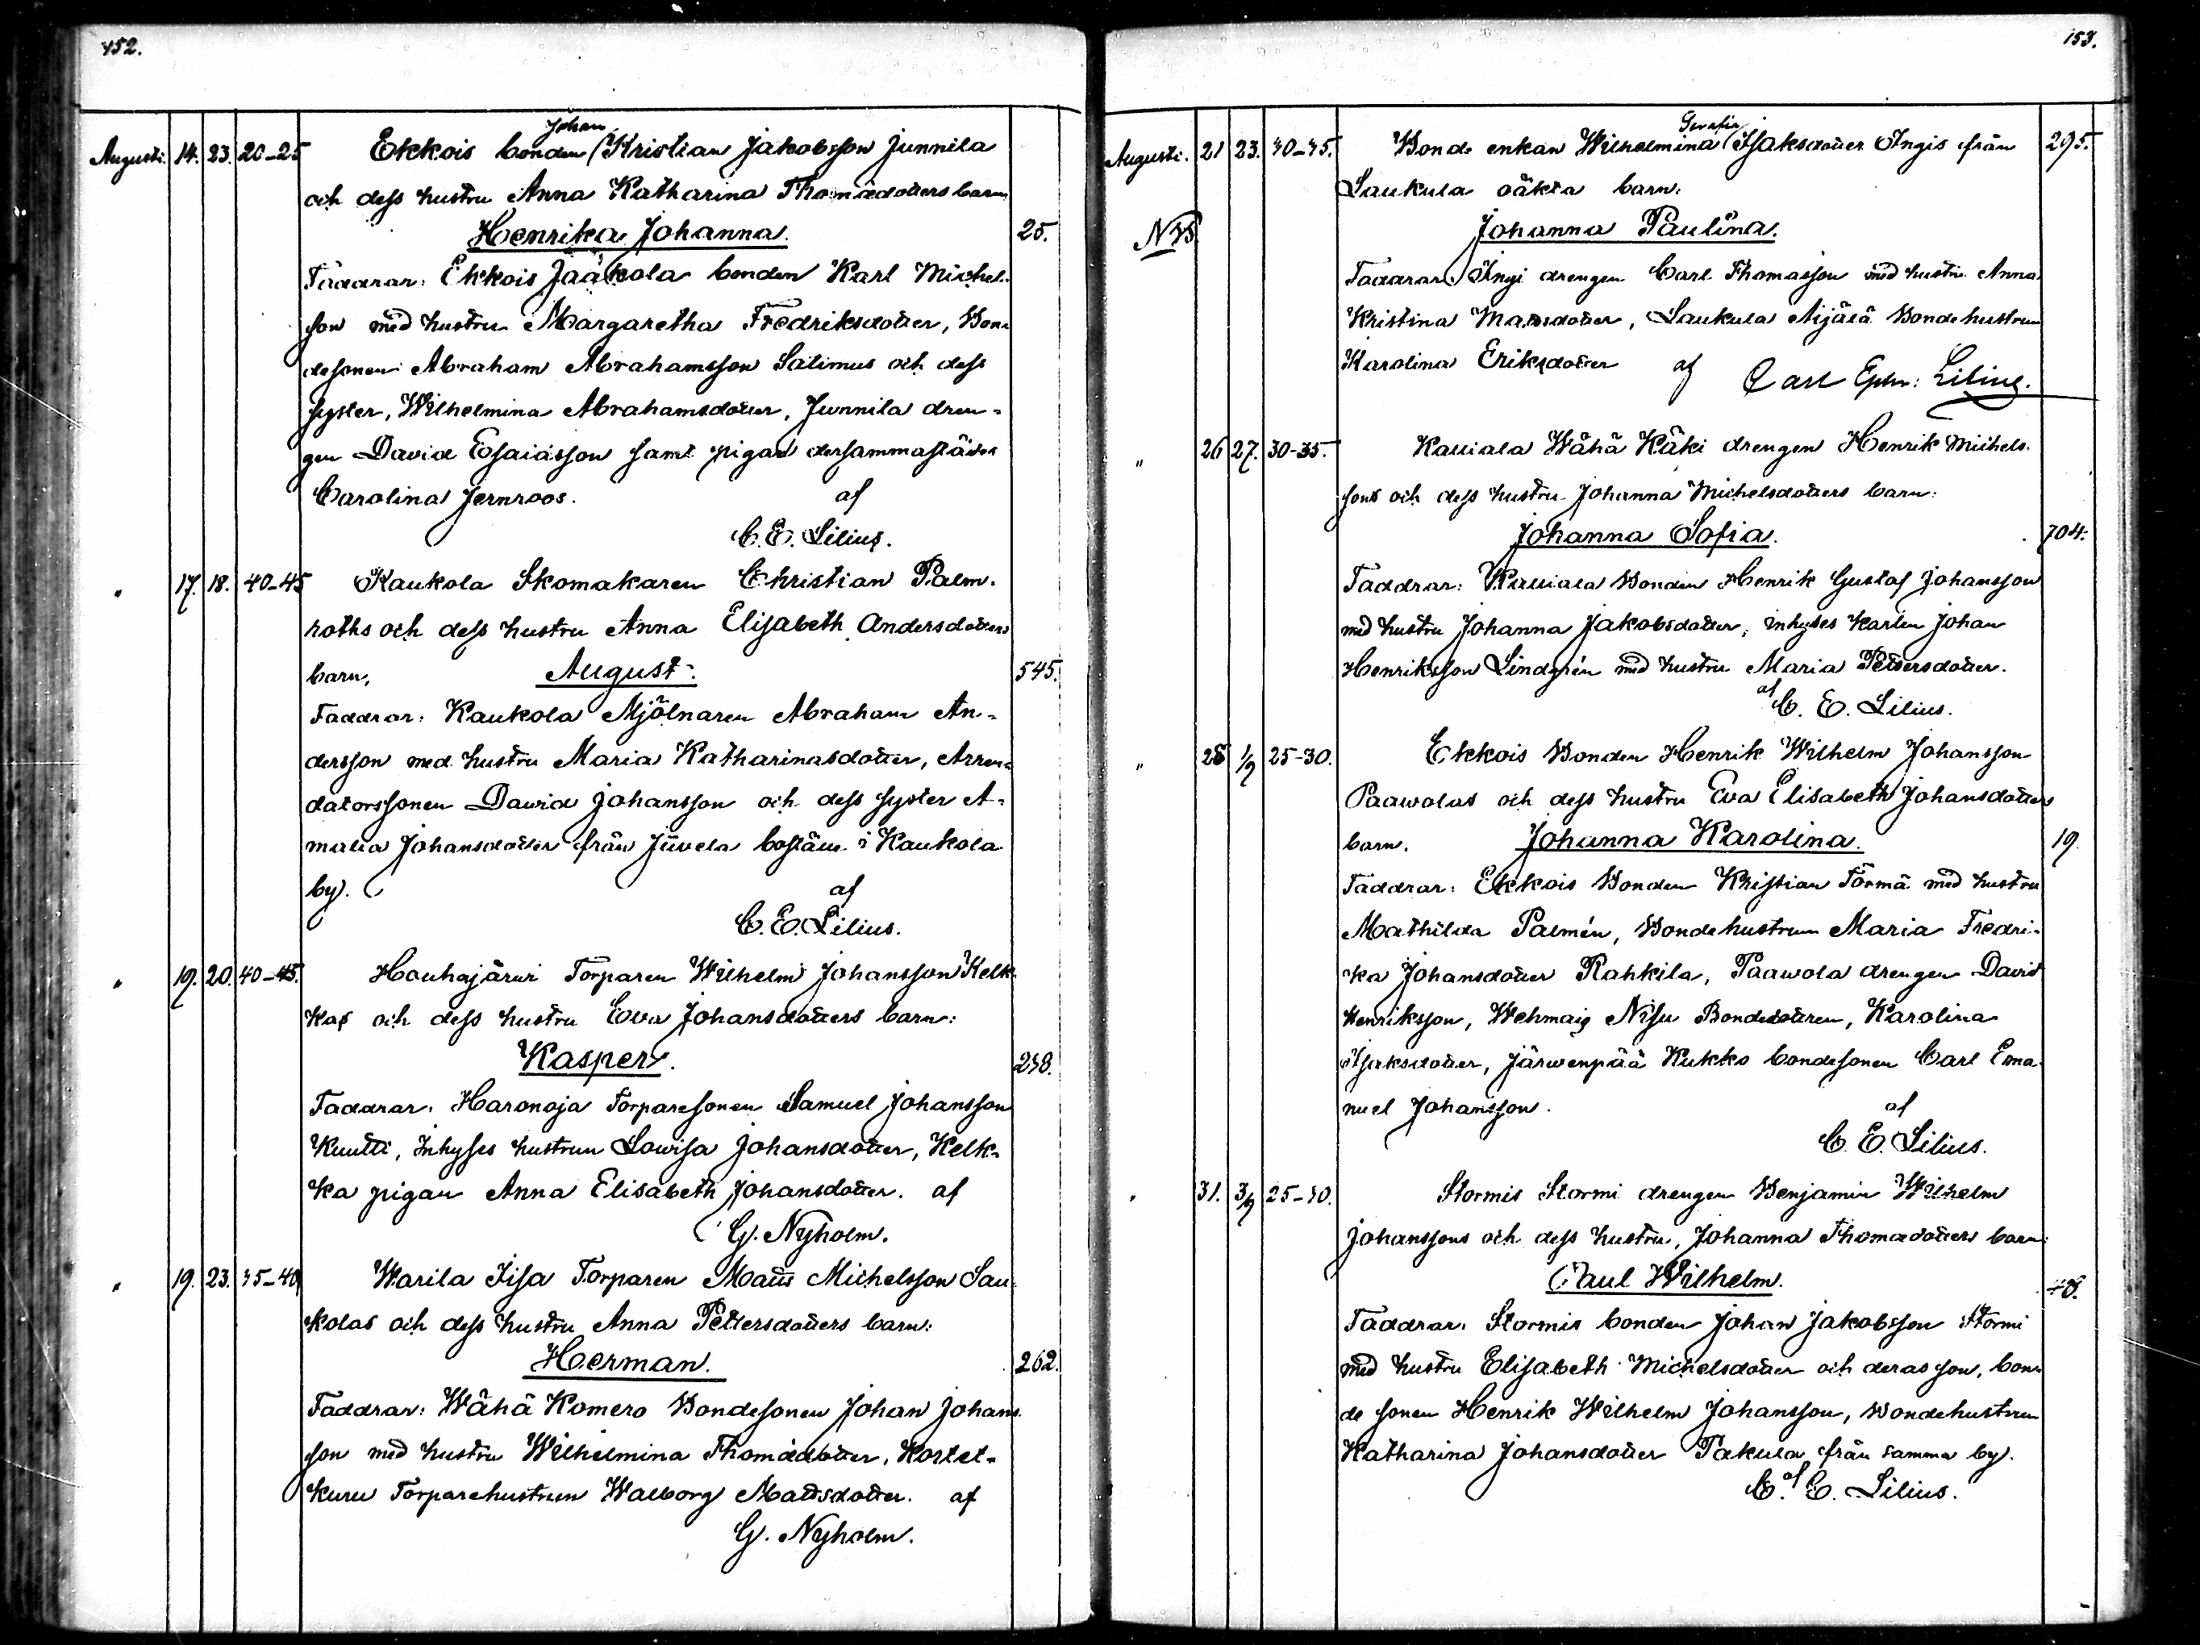 152.
Augusti. 14. 23. 20-25 Ekkois bonden Johan Kristian Jakobsson Junnila
och dess hustru Anna Katharina Thomædotters barn
Henrika Johanna. 25.
Faddrar: Ekkois Jaakola bonden Karl Michel-
son med hustru Margaretha Fredriksdotter, Bon-
desonen Abraham Abrahamsson Salimus och dess
syster, Wilhelmina Abrahamsdotter, Junnila dren-
gen David Esaiasson samt pigan dersammastädes
Carolina Jernroos. af
C. E. Lilius.
" 17. 18. 40-45 Kaukola Skomakaren Christian Palm-
roths och dess hustru Anna Elisabeth Andersdotters
barn, August. 545.
Faddrar: Kaukola Mjölnaren Abraham An-
dersson med hustru Maria Katharinasdotter, Arren-
datorssonen Dawid Johansson och dess syster A-
malia Johansdotter från Juvela bostäm i Kaukola
by. af
C. E. Lilius.
" 19. 20. 40-45. Hauhajärwi Torparen Wilhelm Johansson Kelk-
kas och dess hustru Eva Johansdotters barn:
Kasper. 238.
Faddrar: Haronoja Torparesonen Samuel Johansson
Kuutti, Inhyses hustrun Lowisa Johansdotter, Kelk-
ka pigan Anna Elisabeth Johansdotter. af
G. Nyholm.
" 19. 23. 35-40 Warila Iisa Torparen Matts Michelsson Sau-
kolas och dess hustru Anna Pettersdotters barn:
Herman. 262.
Faddrar: Wähä Komero Bondesonen Johan Johans-
son med hustru Wilhelmina Thomædotter, Kortet-
kuru Torparehustrun Walborg Mattsdotter. af
G. Nyholm.
153.
Augusti. 21 23. 30-35. Bonde enkan Wilhelmina Serafia Isaksdotter Ingis från 295.
Saukula oäkta barn:
NB. Johanna Paulina.
Faddrar: Ingi drengen Carl Thomasson med hustru Anna
Kristina Mattsdotter, Laukula Äijälä Bondehustrun
Karolina Eriksdotter af Carl Ephr: Lilius.
" 26 27. 30-35. Kauiala Wähä Käki drengen Henrik Michels-
sons och dess hustru Johanna Michelsdotters barn:
Johanna Sofia. 704.
Faddrar: Kauiala Bonden Henrik Gustaf Johansson
med hustru Johanna Jakobsdotter, inhyses karlen Johan
Henriksson Lindgrén med hustru Maria Pettersdotter.
af C. E. Lilius.
" 28 1/9 25-30. Ekkois Bonden Henrik Wilhelm Johansson
Paawolas och dess hustru Eva Elisabeth Johansdotters
barn. Johanna Karolina. 19.
Faddrar: Ekkois Bonden Kristian Törmä med hustru
Mathilda Palmén, Bondehustrun Maria Fredri-
ka Johansdotter Rahkila, Paawola drengen David
Henriksson, Wehmais Nisu Bondedotren, Karolina
Isaksdotter, Järwenpää Kukko bondesonen Carl Ema-
nuel Johansson. af
C. E. Lilius.
" 31. 3/9 25-30. Stormis Stormi drengen Benjamin Wilhelm
Johanssons och dess hustru, Johanna Thomædotters barn:
Paul Wilhelm. 48.
Faddrar: Stormis bonden Johan Jakobsson Stormi
med hustru Elisabeth Michelsdotter och deras son, bon-
de sonen Henrik Wilhelm Johansson, Bondehustrun
Katharina Johansdotter Pakula från samma by.
af C. E. Lilius.